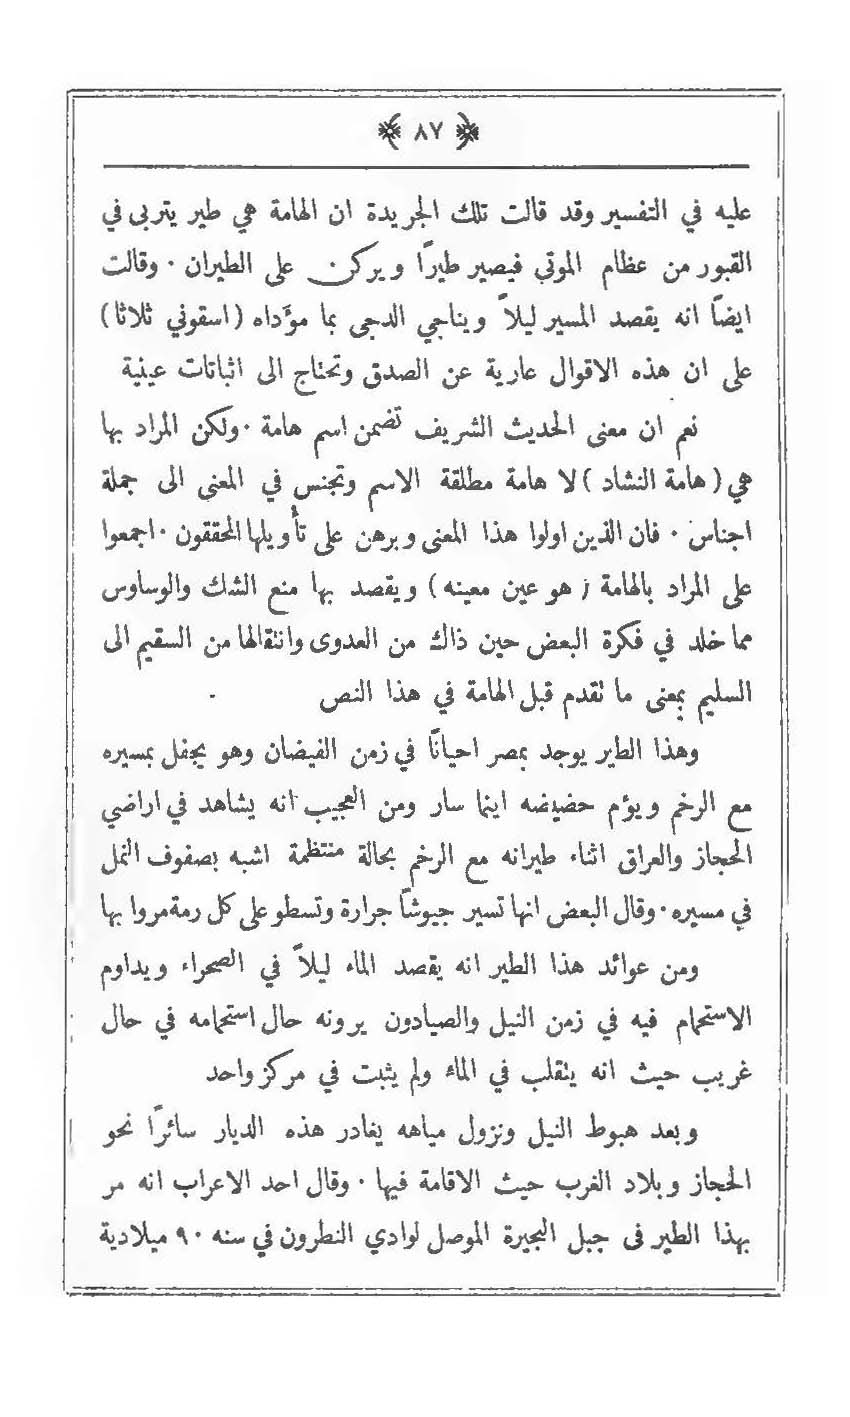 ﴿ ٨٧ ﴾
عليه في التفسير وقد قالت تلك الجريدة ان الهامة هي طير يتربى في
القبور من عظام الموتي فيصير طيرًا ويركن على الطيران · وقالت
ايضًا انه يقصد المسير ليلاً ويناجي الدجى بما مؤَداه (اسقوني ثلاثا)
على ان هذه الاقوال عارية عن الصدق وتحتاج الى اثباتات عينية
نعم ان معنى الحديث الشريف تضمن اسم هامة · ولكن المراد بها
هي (هامة النشاد) لا هامة مطلقة الاسم وتجنس في المعنى الى جملة
اجناس · فان الذين اولوا هذا المعنى وبرهن على تأويلها المحققون · اجمعوا
على المراد بالهامة (هو عين معينه) ويقصد بها منع الشك والوساوس
مما خلد في فكرة البعض حين ذاك من العدوى وانتقالها من السقيم الى
السليم بمعنى ما تقدم قبل الهامة في هذا النص
وهذا الطير يوجد بمصر احيانًا في زمن الفيضان وهو يجفل بمسيره
مع الرخم ويؤم حضيضه اينما سار ومن العجيب انه يشاهد في اراضي
الحجاز والعراق اثناء طيرانه مع الرخم بحالة منتظمة اشبه بصفوف النمل
في مسيره · وقال البعض انها تسير جيوشًا جرارة وتسطو على كل رمة مروا بها
ومن عوائد هذا الطير انه يقصد الماء ليلاً في الصحراء ويداوم
الاستحمام فيه في زمن النيل والصيادون يرونه حال استحمامه في حال
غريب حيث انه يتقلب في الماء ولم يثبت في مركز واحد
وبعد هبوط النيل ونزول مياهه يغادر هذه الديار سائرًا نحو
الحجاز وبلاد الغرب حيث الاقامة فيها · وقال احد الاعراب انه مر
بهذا الطير فى جبل البحيرة الموصل لوادي النطرون في سنه ٩٠ ميلادية